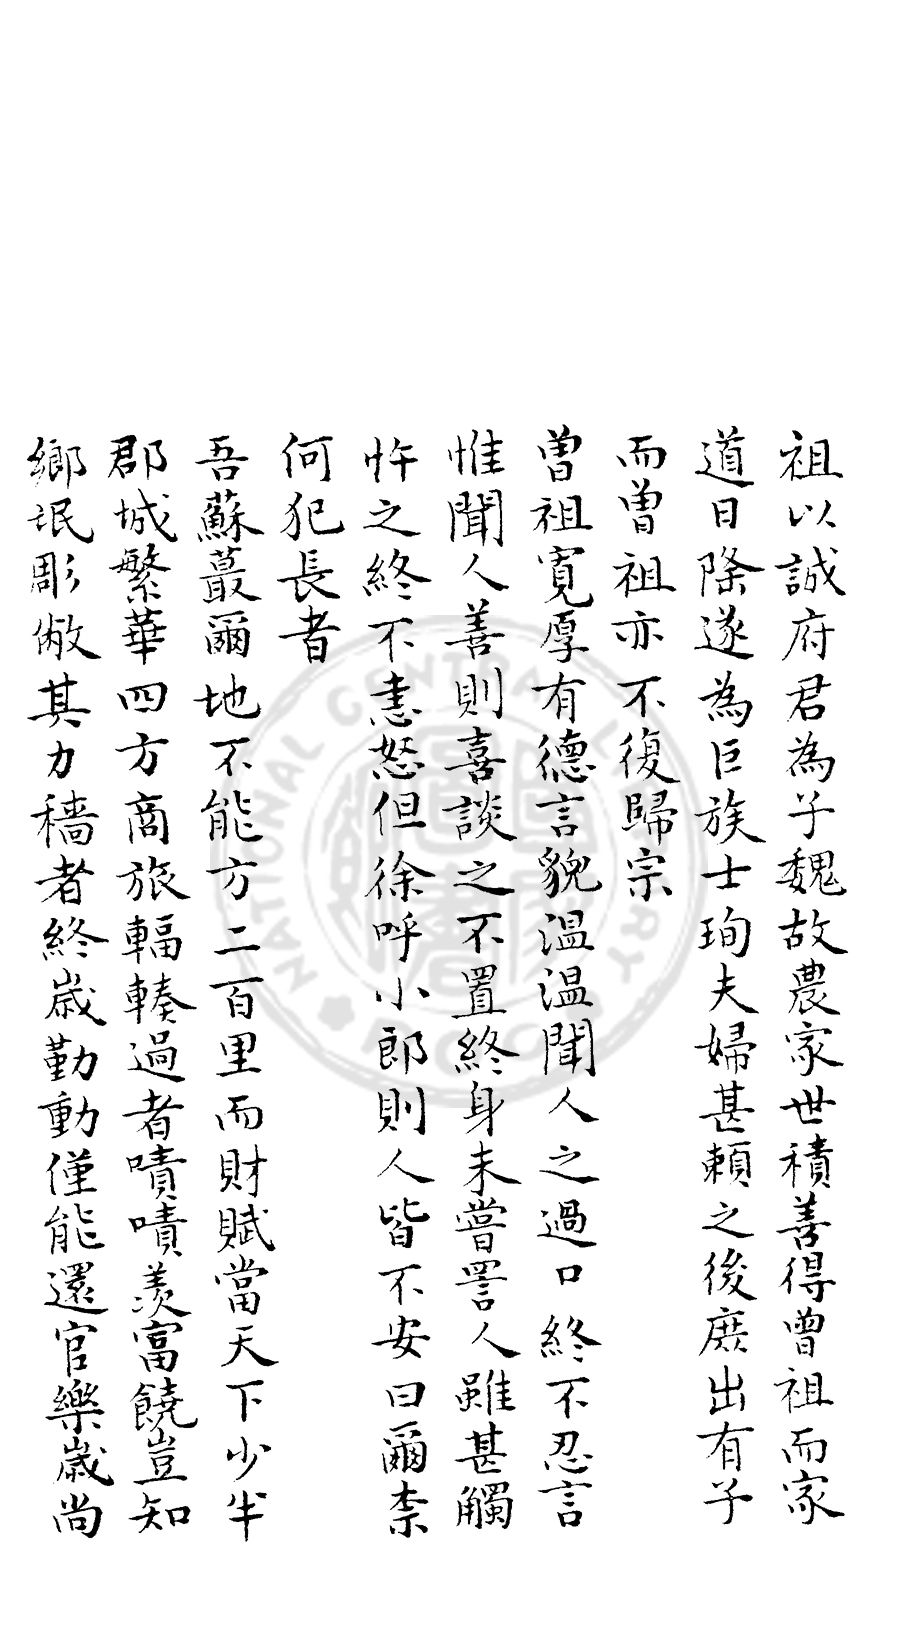 祖以誠府君為子魏故農家世積善得曽祖而家
道日隆遂為巨族士珣夫婦甚賴之後庶出有子
而曽祖亦不復歸宗
曽祖寛厚有德言貌温温聞人之過口終不忍言
惟聞人善則喜談之不置終身未甞詈人雖甚觸
忤之終不恚怒但徐呼小郎則人皆不安曰爾柰
何犯長者
吾蘇蕞爾地不能方二百里而財賦當天下少半
郡城繁華四方商旅輻輳過者嘖嘖羨富饒豈知
鄉氓彫敝其力穡者終歳勤動僅能還官樂歳尚
NATIONAL CENTRAL LIBRARY